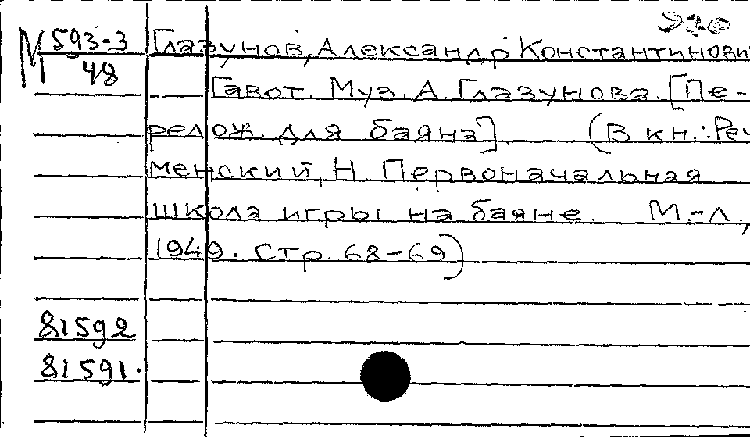 М 593-3
48
Глазунов, Александр Константинови
Гавот. Муз. А. Глазунова. [Пе-
релож. для баяна]. (В кн.: Реч
менский, Н. Первоначальная
школа игры на баяне. М.-Л,
1949. Стр. 68-69)
81592
81591.